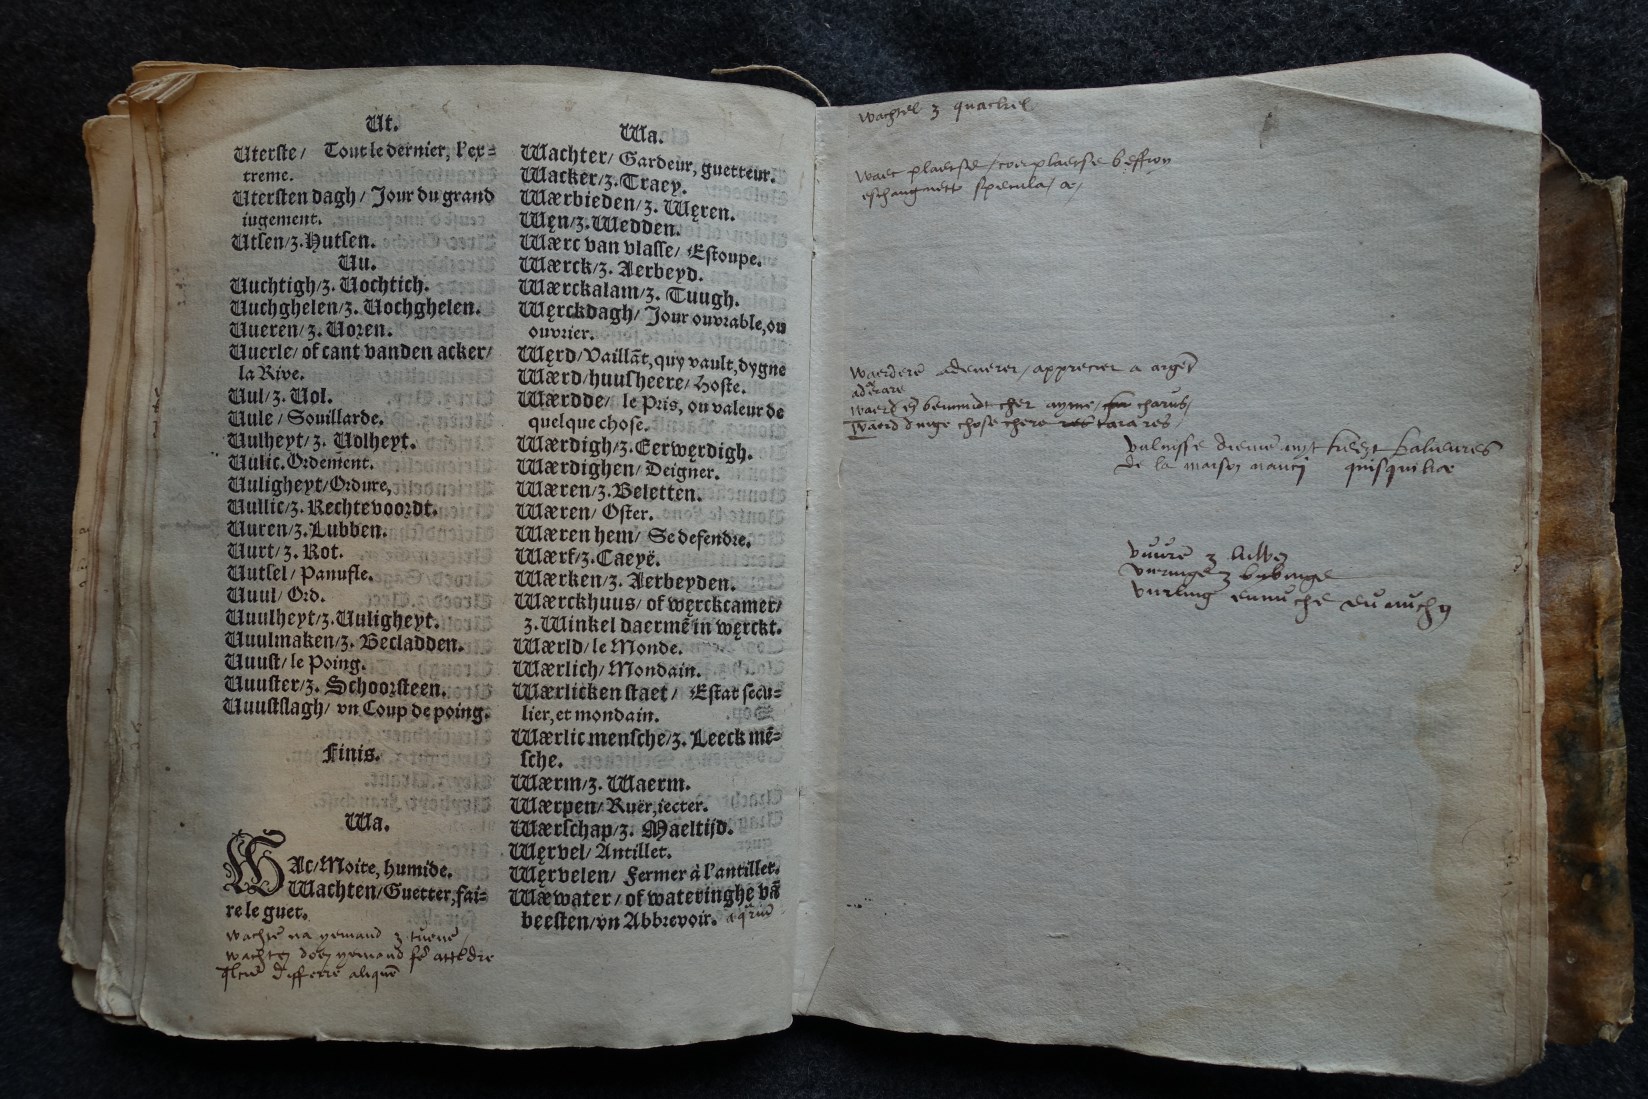 Ut.
Uterste/ Tout le dernier, l'ex=
treme.
Utersten dagh/ Jour du grand
iugement.
Utsen/z. Hutsen.
Uu.
Uuchtigh/z. Uochtich.
Uuchghelen/z. Uochghelen.
Uueren/z. Uoren.
Uuerle/ of cant vanden acker/
la Rive.
Uul/z. Uol.
Uule/ Souillarde.
Uulheyt/z. Uolheyt.
Uulic. Ordemēt.
Uuligheyt/Ordure,
Uullic/z. Rechtevoordt.
Uuren/z. Lubben.
Uurt/z. Rot.
Uutsel/ Panufle.
Uuul/ Ord.
Uuulheyt/z. Uuligheyt.
Uuulmaken/z. Becladden.
Uuust/ le Poing.
Uuuster/z. Schoorsteen.
Uuustslagh/ vn Coup de poing.
Finis.
Wa.
WAc/Moite, humide.
Wachten/Guetter, fai=
re le guet.
wachtē na yemand z tuenē
wachten doen yemand attēdre
differre aliquē
Wa.
Wachter/ Gardeur, guetteur.
Wacker/z. Traey.
Wærbieden/z. Węren.
Węn/z. Wedden.
Wærc van vlasse/ Estoupe.
Wærck/z. Aerbeyd.
Wærckalam/z. Tuugh.
Węrckdagh/ Jour ouvrable, ou
ouvrier.
Węrd/Vaillāt, quy vault, dygne
Wærd/huusheere/ Hoste.
Wærdde/ le Pris, ou valeur de
quelque chose.
Wærdigh/z. Eerwęrdigh.
Wærdighen/ Deigner.
Wæren/z. Beletten.
Wæren/ Oster.
Wæren hem/ Se defendre.
Wærf/z. Caeyē.
Wærken/z. Aerbeyden.
Wærckhuus/ of węrckcamer/
z. Winkel daermē in węrckt.
Wærld/ le Monde.
Wærlich/ Mondain.
Wærlicken staet/ Estat secu=
lier, et mondain.
Wærlic mensche/z. Leeck mē=
sche.
Wærm/z. Waerm.
Wærpen/ Ruer, iecter.
Wærschap/z. Maeltijd.
Węrvel/ Antillet.
Węrvelen/ Fermer à l'antillet.
Wæwater/ of wateringhe vā
beesten/vn Abbrevoir.
wachtel z quackel
waec plaetse / beffroy
eschauguette specula/ æ/
waerderē adenerer/ apprecier a argēt
adærare
waerd eñ bemindt cher aymé/ charus/
waerd dinge chose chere rara res/
vulnisse diemē uyt keert baliures
de la maison quisquiliæ
vuurē z
vurlinge z
vurling eunuche eunuchus